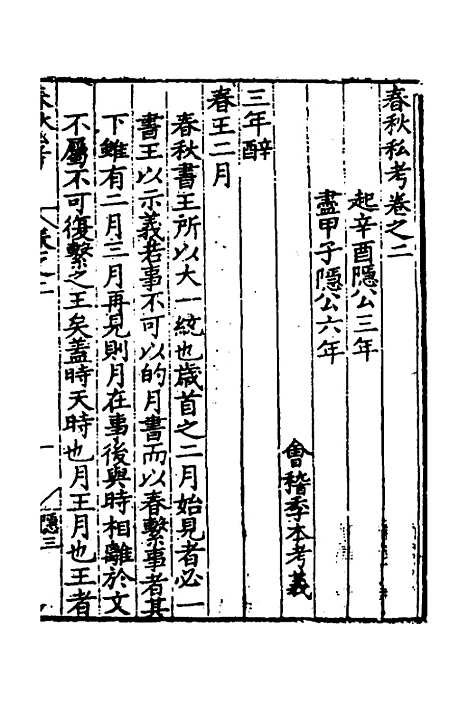 春秋私考卷之二
起辛酉隱公三年
盡甲子隱公六年
會稽季本考義
三年
春王二月
春秋書王所以大一統也歲首之二月始見者必一
書王以示義若事不可以的月書而以春繫事者其
下雖有二月三月再見則月在事後與時相離於文
不屬不可復繫之王矣蓋時天時也月王月也王者
隱三